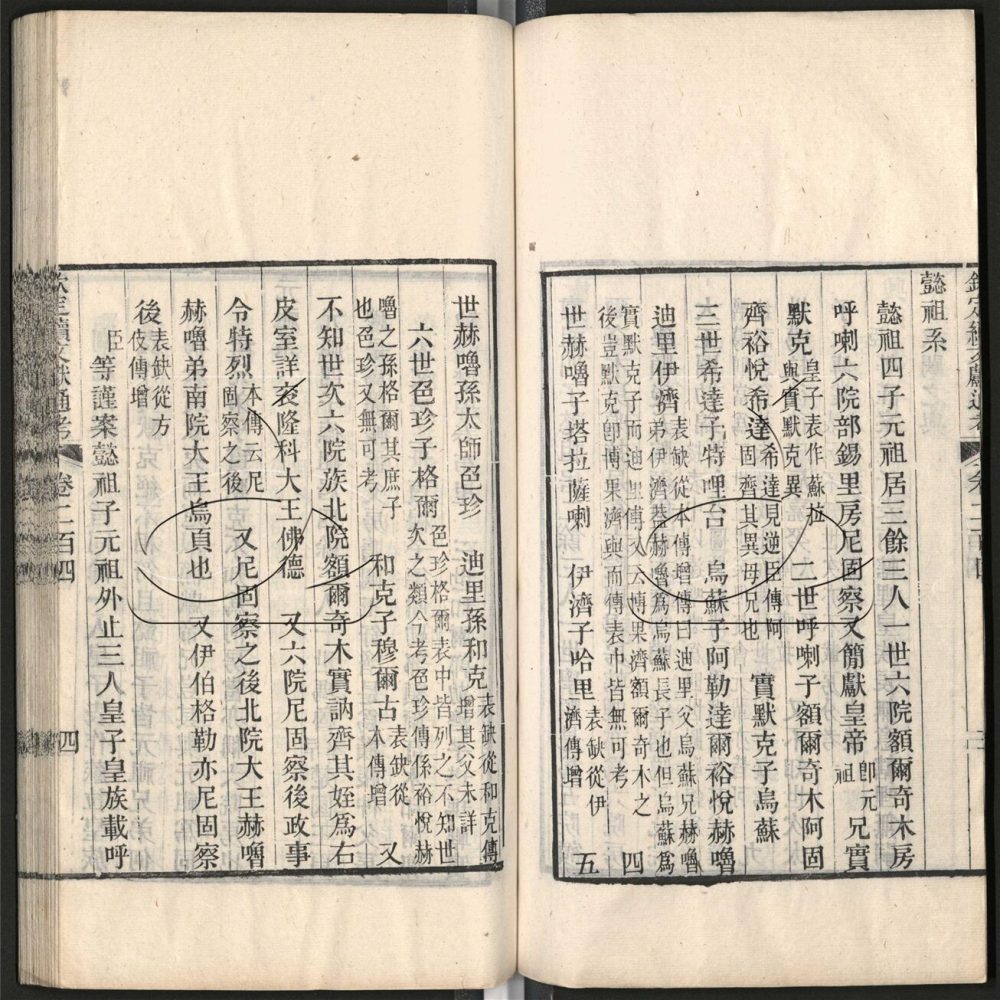 懿祖系
懿祖四子元祖居三餘三人一世六院額爾奇木房
呼喇六院部錫里房尼固察又簡獻皇帝即元祖兄實
默克皇子表作蘇拉與實默克異 二世呼喇子額爾奇木阿固
齊裕悅希達希達見逆臣傳阿固齊其異母兄也 實默克子烏蘇
三世希達子特哩台 烏蘇子阿勒達爾裕悅赫嚕
迪里伊濟表缺從本傳增傳曰迪里父烏蘇兄赫嚕弟伊濟葢赫嚕爲烏蘇長子也但烏蘇爲
實默克子而迪里傳又云博果濟額爾奇木之後豈默克卽博果濟與而傳表巾皆無可考 四
世赫嚕子塔拉薩喇 伊濟子哈里表缺從伊濟傳增 五
世赫嚕孫太師邑珍 迪里孫和克表缺從和克傳增其父未詳
六世邑珍子格爾邑珍格爾表中皆列之不知世次之類今考邑珍傳係裕悅赫
嚕之孫格爾其庶子也邑珍又無可考 和克子穆爾古表缺從本傳增 又
不知世次六院族北院額爾奇木實訥齊其姪爲右
皮室詳衮隆科大王佛德 又六院尼固察後政事
令特烈本傳云尼固察之後 又尼固察之後北院大王赫嚕
赫嚕弟南院大王烏貞也 又伊伯格勒亦尼固察
後表缺從方伎傳增
臣等謹案懿祖子元祖外止三人皇子皇族載呼
卷二百四
四